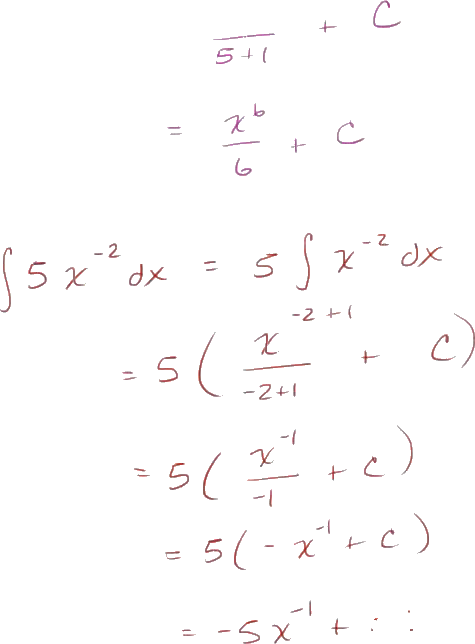 / 5+1 + C
= x^6 / 6 + C
∫ 5 x^-2 dx = 5 ∫ x^-2 dx
= 5 ( x^-2+1 / -2+1 + C )
= 5 ( x^-1 / -1 + C )
= 5 ( - x^-1 + C )
= -5 x^-1 +